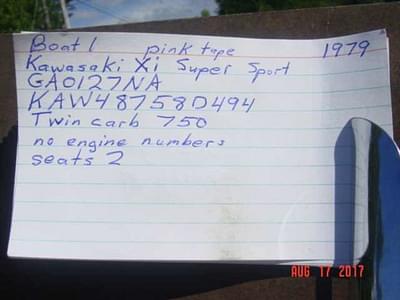 Boat 1 pink tape 1979
Kawasaki Xi Super Sport
GA0127NA
KAW48758D494
Twin carb 750
no engine numbers
seats 2
AUG 17 2017